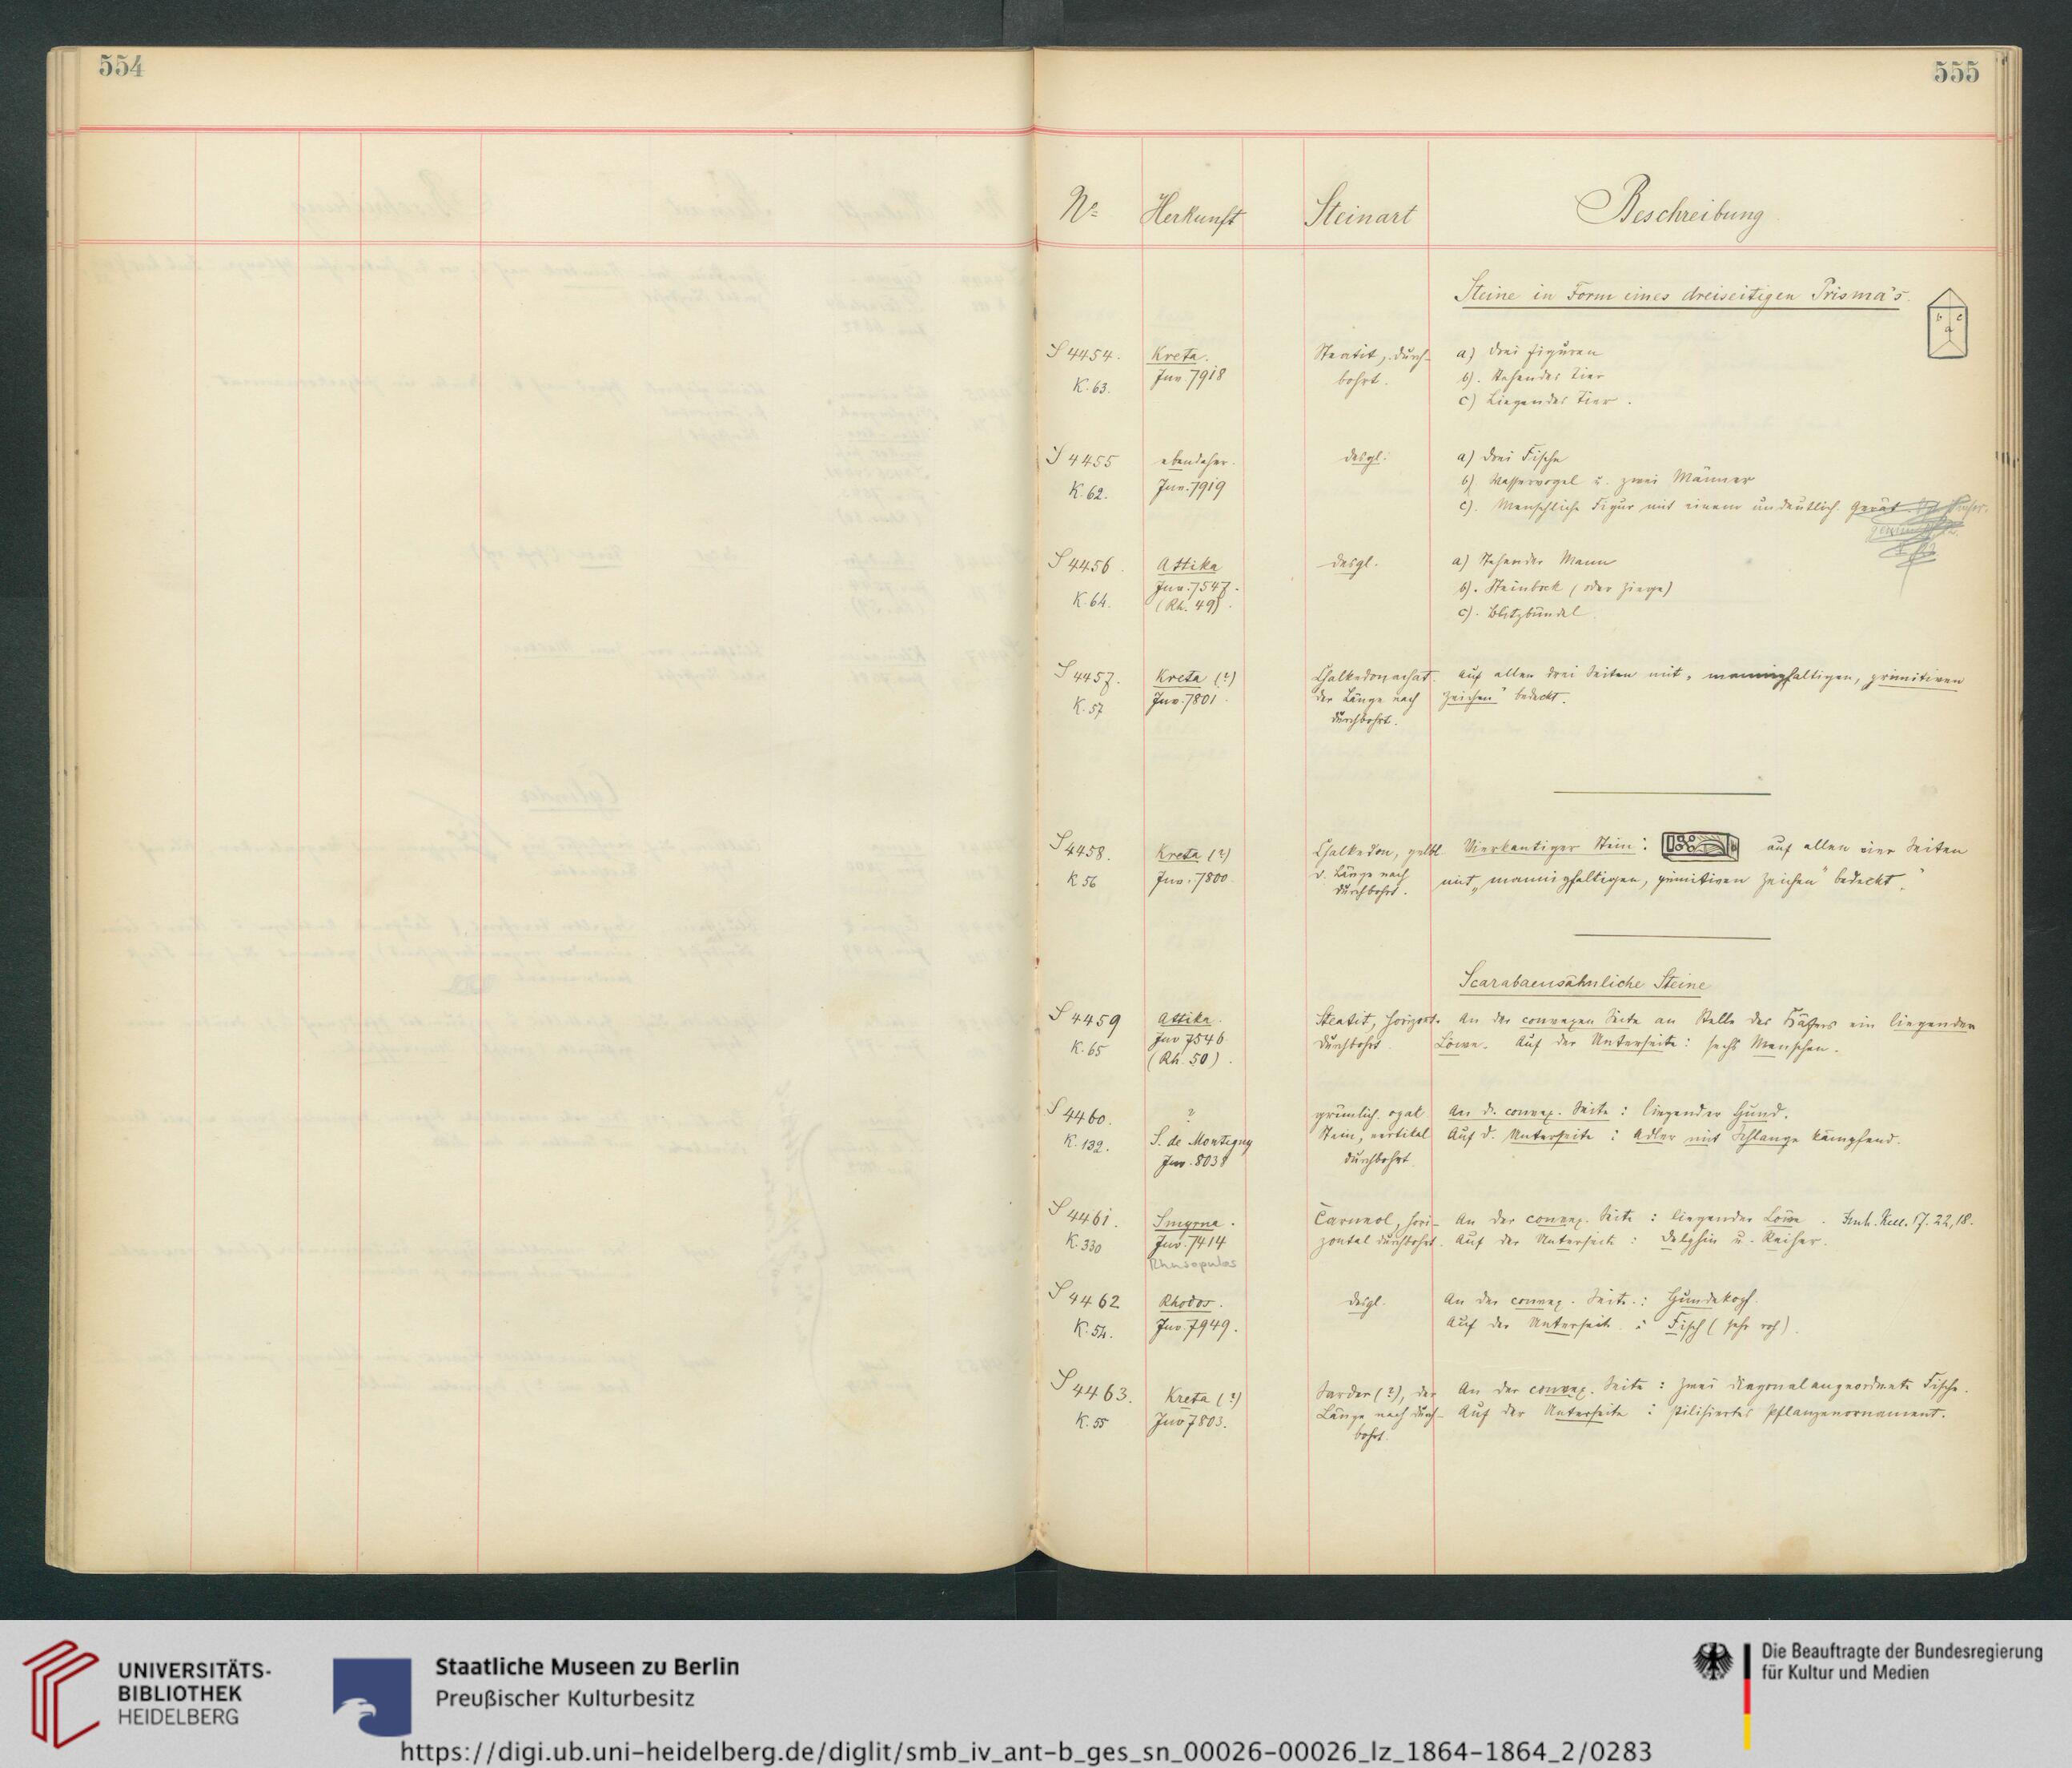 554
555
No Herkunft Steinart Beschreibung
Steine in Form eines dreiseitigen Prisma's.
b c
a
S 4454. Kreta. Steatit, durch- a) drei Figuren
K. 63. Inv. 7918 bohrt. b). Stehendes Tier
c) Liegendes Tier.
S 4455 ebendaher. desgl. a) drei Fische
K. 62. Inv. 7919 b) Wasservogel u. zwei Männer
c). Menschliche Figur mit einem undeutlich. Gerät.
S 4456. Attika desgl. a) Stehender Mann
Inv. 7547. b). Steinbock (oder Ziege)
K. 64. (Rh. 49). c). Blitzbündel.
S 4457. Kreta (?) Chalkedonachat Auf allen drei Seiten mit „mannigfaltigen, primitiven
K. 57 Inv. 7801. der Länge nach Zeichen" bedeckt.
durchbohrt.
S 4458. Kreta (?) Chalkedon, gelbl. Vierkantiger Stein: auf allen vier Seiten
K 56 Inv. 7800. d. Länge nach mit „mannigfaltigen, primitiven Zeichen" bedeckt.
durchbohrt.
Scarabaeusähnliche Steine
S 4459 Attika. Steatit, horizont. An der convexen Seite an Stelle des Käfers ein liegender
K. 65 Inv 7546 durchbohrt. Löwe. Auf der Unterseite: sechs Menschen.
(Rh. 50).
S 4460. ? grünlich. opak An d. convex. Seite: liegender Hund.
K. 132. S. de Montigny Stein, vertikal Auf d. Unterseite: Adler mit Schlange kämpfend.
Inv. 8038 durchbohrt.
S 4461. Smyrna. Carneol, hori- An der convex. Seite: liegender Löwe. Imh. Kell. 17. 22, 18.
K. 330 Inv. 7414 zontal durchbohrt. Auf der Unterseite: Delphin u. Reiher.
Rhusopulos
S 4462 Rhodos. desgl. An der convex. Seite: Hundekopf.
K. 54. Inv. 7949. Auf der Unterseite: Fisch (sehr roh).
S 4463. Kreta (?) Sarder (?), der An der convex. Seite: zwei diagonal angeordnete Fische.
K. 55 Inv 7803. Länge nach durch- Auf der Unterseite: stilisiertes Pflanzenornament.
bohrt.
UNIVERSITÄTS-
BIBLIOTHEK
HEIDELBERG
Staatliche Museen zu Berlin
Preußischer Kulturbesitz
Die Beauftragte der Bundesregierung
für Kultur und Medien
https://digi.ub.uni-heidelberg.de/diglit/smb_iv_ant-b_ges_sn_00026-00026_lz_1864-1864_2/0283